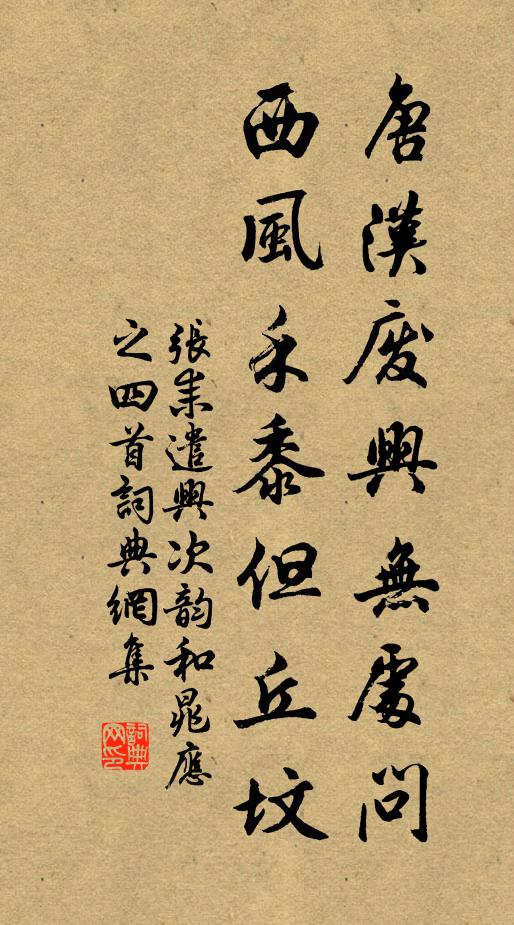 唐漢废興無處問
西風禾黍但丘坟
張耒遣興次韵和晁應
之四首詞典網集
詞典
网印